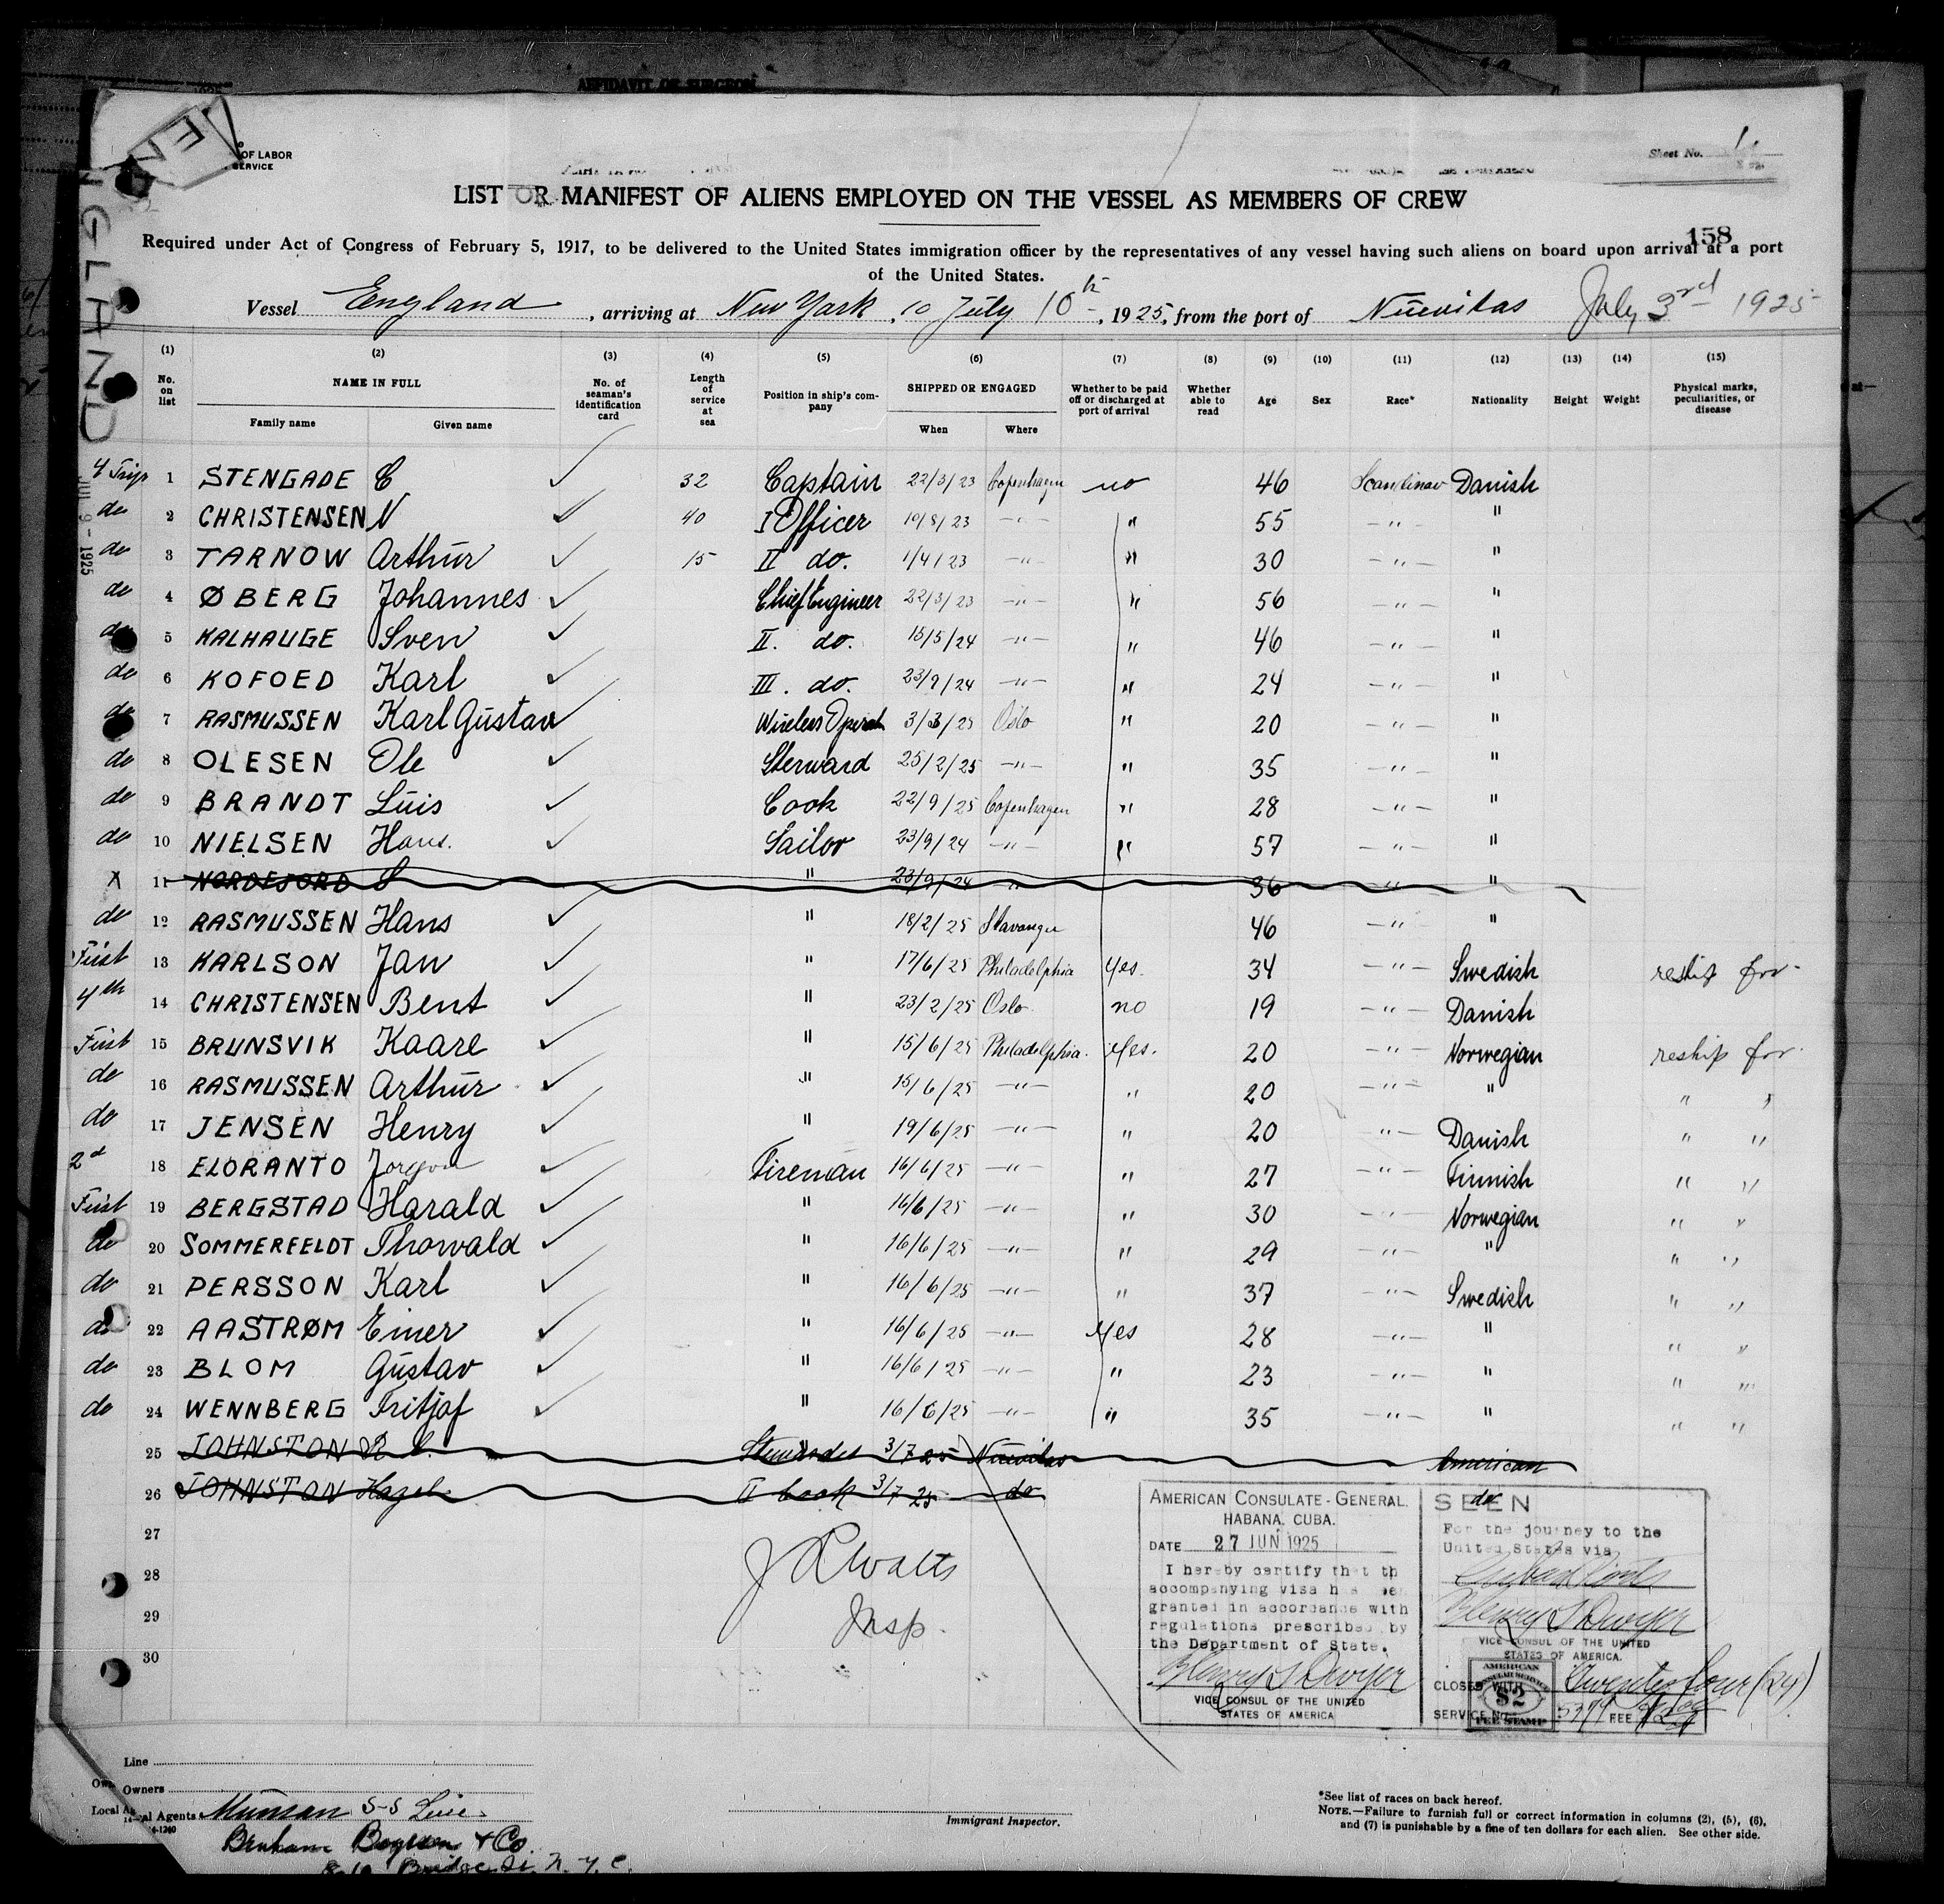 AFFIDAVIT OF SURGEON
EN
OF LABOR
SERVICE
Sheet No. 1
LIST OR MANIFEST OF ALIENS EMPLOYED ON THE VESSEL AS MEMBERS OF CREW
158
Required under Act of Congress of February 5, 1917, to be delivered to the United States immigration officer by the representatives of any vessel having such aliens on board upon arrival at a port
of the United States.
Vessel England, arriving at New York, 10 July 10th, 1925, from the port of Nuevitas July 3rd 1925
NGLAND
JUL 9 - 1925
(1) (2) (3) (4) (5) (6) (7) (8) (9) (10) (11) (12) (13) (14) (15)
No. on list NAME IN FULL No. of seaman's identification card Length of service at sea Position in ship's company SHIPPED OR ENGAGED Whether to be paid off or discharged at port of arrival Whether able to read Age Sex Race* Nationality Height Weight Physical marks, peculiarities, or disease
Family name Given name When Where
4 Trip 1 STENGADE C ✓ 32 Captain 22/3/23 Copenhagen no 46 Scandinav Danish
do 2 CHRISTENSEN N ✓ 40 I Officer 19/8/23 -"- " 55 -"- "
do 3 TARNOW Arthur ✓ 15 II do. 1/4/23 -"- " 30 -"- "
do 4 ØBERG Johannes ✓ Chief Engineer 22/3/23 -"- " 56 -"- "
do 5 KALHAUGE Sven ✓ II. do. 15/5/24 -"- " 46 -"- "
do 6 KOFOED Karl ✓ III. do. 23/9/24 -"- " 24 -"- "
do 7 RASMUSSEN Karl Gustav ✓ Wireless Operat 3/3/25 Oslo " 20 -"- "
do 8 OLESEN Ole ✓ Sterward 25/2/25 -"- " 35 -"- "
do 9 BRANDT Luis ✓ Cook 22/9/25 Copenhagen " 28 -"- "
do 10 NIELSEN Hans. ✓ Sailor 23/9/24 -"- " 57 -"- "
X 11 NORDFJORD S " 23/9/24 " 36 " "
do 12 RASMUSSEN Hans ✓ " 18/2/25 Stavanger 46 -"- "
First 13 KARLSON Jan ✓ " 17/6/25 Philadelphia yes. 34 -"- Swedish reship for.
4th 14 CHRISTENSEN Bent ✓ " 23/2/25 Oslo no 19 -"- Danish
First 15 BRUNSVIK Kaare ✓ " 15/6/25 Philadelphia. yes. 20 -"- Norwegian reship for.
do 16 RASMUSSEN Arthur ✓ " 15/6/25 -"- " 20 -"- " " "
do 17 JENSEN Henry ✓ " 19/6/25 -"- " 20 -"- Danish " "
2d 18 ELORANTO ✓ Fireman 16/6/25 -"- " 27 -"- Finnish " "
First 19 BERGSTAD Harald ✓ " 16/6/25 -"- " 30 -"- Norwegian " "
do 20 SOMMERFELDT Thorvald ✓ " 16/6/25 -"- " 29 -"- " " "
do 21 PERSSON Karl ✓ " 16/6/25 -"- " 37 -"- Swedish " "
do 22 AASTRØM Einer ✓ " 16/6/25 -"- yes 28 -"- " " "
do 23 BLOM Gustav ✓ " 16/6/25 -"- " 23 -"- " " "
do 24 WENNBERG Fritjof ✓ " 16/6/25 -"- " 35 -"- " " "
25 JOHNSTON Stewardes 3/7 25 Nuevitas American
26 JOHNSTON Hazel II Cook 3/7 25 do do
27
28
29
30
J L Walts
Insp.
AMERICAN CONSULATE-GENERAL.
HABANA, CUBA.
DATE 27 JUN 1925
I hereby certify that th
accompanying visa has been
granted in accordance with
regulations prescribed by
the Department of State.
Henry S Dwyer
VICE CONSUL OF THE UNITED
STATES OF AMERICA
SEEN
For the journey to the
United States via
Henry S Dwyer
VICE CONSUL OF THE UNITED
STATES OF AMERICA.
AMERICAN
CONSULAR SERVICE
$2
FEE STAMP
CLOSED WITH Twenty four (24)
SERVICE No. 5379 FEE
Line
Owners
Local Agents Munson S-S Line.
Benham Boyesen & Co.
8-10 Bridge St. N.Y.C.
Immigrant Inspector.
*See list of races on back hereof.
NOTE.—Failure to furnish full or correct information in columns (2), (5), (6),
and (7) is punishable by a fine of ten dollars for each alien. See other side.